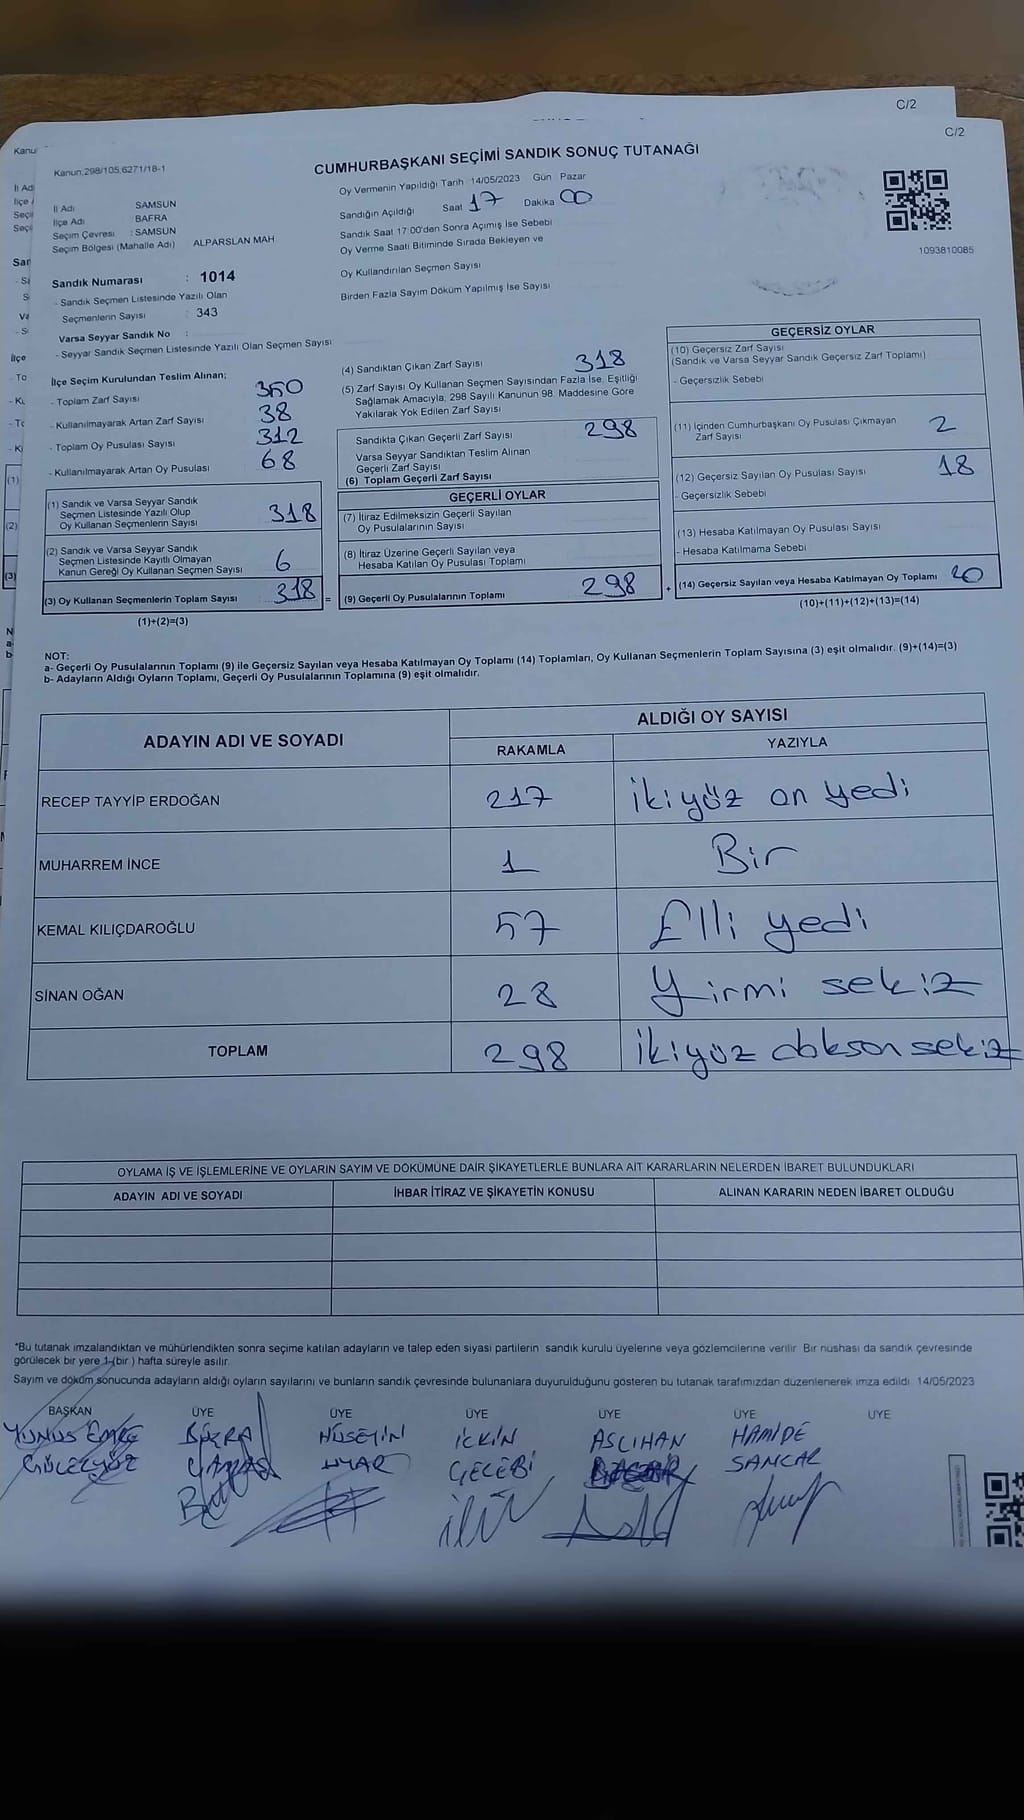 C/2
C/2
Kanun,298/105,6271/18-1
CUMHURBAŞKANI SEÇİMİ SANDIK SONUÇ TUTANAĞI
İl Adı SAMSUN
İlçe Adı : BAFRA
Seçim Çevresi : SAMSUN
Seçim Bölgesi (Mahalle Adı) ALPARSLAN MAH
Sandık Numarası : 1014
- Sandık Seçmen Listesinde Yazılı Olan
Seçmenlerin Sayısı : 343
Varsa Seyyar Sandık No :
- Seyyar Sandık Seçmen Listesinde Yazılı Olan Seçmen Sayısı
Oy Vermenin Yapıldığı Tarih 14/05/2023 Gün Pazar
Sandığın Açıldığı Saat 17 Dakika 00
Sandık Saat 17:00'den Sonra Açımış İse Sebebi
Oy Verme Saati Bitiminde Sırada Bekleyen ve
Oy Kullandırılan Seçmen Sayısı
Birden Fazla Sayım Döküm Yapılmış İse Sayısı
1093810085
İlçe Seçim Kurulundan Teslim Alınan;
- Toplam Zarf Sayısı 350
- Kullanılmayarak Artan Zarf Sayısı 38
- Toplam Oy Pusulası Sayısı 312
- Kullanılmayarak Artan Oy Pusulası 68
(1) Sandık ve Varsa Seyyar Sandık
Seçmen Listesinde Yazılı Olup
Oy Kullanan Seçmenlerin Sayısı 318
(2) Sandık ve Varsa Seyyar Sandık
Seçmen Listesinde Kayıtlı Olmayan
Kanun Gereği Oy Kullanan Seçmen Sayısı 6
(3) Oy Kullanan Seçmenlerin Toplam Sayısı 318 =
(1)+(2)=(3)
(4) Sandıktan Çıkan Zarf Sayısı 318
(5) Zarf Sayısı Oy Kullanan Seçmen Sayısından Fazla İse, Eşitliği
Sağlamak Amacıyla, 298 Sayılı Kanunun 98. Maddesine Göre
Yakılarak Yok Edilen Zarf Sayısı
Sandıkta Çıkan Geçerli Zarf Sayısı 298
Varsa Seyyar Sandıktan Teslim Alınan
Geçerli Zarf Sayısı
(6) Toplam Geçerli Zarf Sayısı
GEÇERLİ OYLAR
(7) İtiraz Edilmeksizin Geçerli Sayılan
Oy Pusulalarının Sayısı
(8) İtiraz Üzerine Geçerli Sayılan veya
Hesaba Katılan Oy Pusulası Toplamı
(9) Geçerli Oy Pusulalarının Toplamı 298 +
GEÇERSİZ OYLAR
(10) Geçersiz Zarf Sayısı
(Sandık ve Varsa Seyyar Sandık Geçersiz Zarf Toplamı)
- Geçersizlik Sebebi
(11) İçinden Cumhurbaşkanı Oy Pusulası Çıkmayan
Zarf Sayısı 2
(12) Geçersiz Sayılan Oy Pusulası Sayısı 18
- Geçersizlik Sebebi
(13) Hesaba Katılmayan Oy Pusulası Sayısı
- Hesaba Katılmama Sebebi
(14) Geçersiz Sayılan veya Hesaba Katılmayan Oy Toplamı 20
(10)+(11)+(12)+(13)=(14)
NOT:
a- Geçerli Oy Pusulalarının Toplamı (9) ile Geçersiz Sayılan veya Hesaba Katılmayan Oy Toplamı (14) Toplamları, Oy Kullanan Seçmenlerin Toplam Sayısına (3) eşit olmalıdır. (9)+(14)=(3)
b- Adayların Aldığı Oyların Toplamı, Geçerli Oy Pusulalarının Toplamına (9) eşit olmalıdır.
ADAYIN ADI VE SOYADI ALDIĞI OY SAYISI
RAKAMLA YAZIYLA
RECEP TAYYİP ERDOĞAN 217 ikiyüz on yedi
MUHARREM İNCE 1 Bir
KEMAL KILIÇDAROĞLU 57 Elli yedi
SİNAN OĞAN 28 Yirmi sekiz
TOPLAM 298 ikiyüz doksan sekiz
OYLAMA İŞ VE İŞLEMLERİNE VE OYLARIN SAYIM VE DÖKÜMÜNE DAİR ŞİKAYETLERLE BUNLARA AİT KARARLARIN NELERDEN İBARET BULUNDUKLARI
ADAYIN ADI VE SOYADI İHBAR İTİRAZ VE ŞİKAYETİN KONUSU ALINAN KARARIN NEDEN İBARET OLDUĞU
*Bu tutanak imzalandıktan ve mühürlendikten sonra seçime katılan adayların ve talep eden siyasi partilerin sandık kurulu üyelerine veya gözlemcilerine verilir. Bir nüshası da sandık çevresinde
görülecek bir yere 1 (bir ) hafta süreyle asılır.
Sayım ve döküm sonucunda adayların aldığı oyların sayılarını ve bunların sandık çevresinde bulunanlara duyurulduğunu gösteren bu tutanak tarafımızdan düzenlenerek imza edildi. 14/05/2023
BAŞKAN ÜYE ÜYE ÜYE ÜYE ÜYE ÜYE
YUNUS EMRE BÜŞRA HÜSEYİN İLKİN ASLIHAN HAMİDE
UYAR ÇELEBİ SANCAR